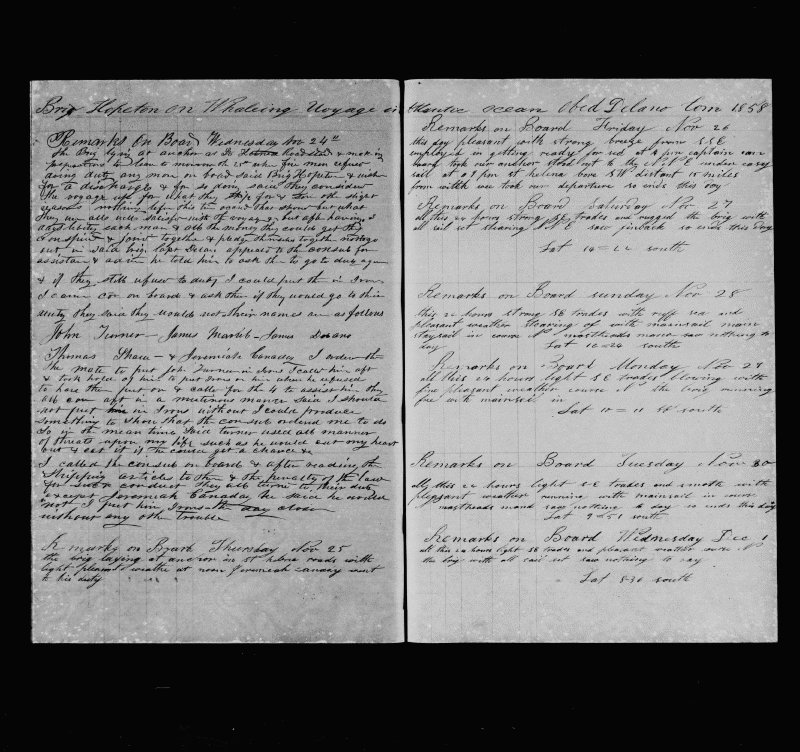 Brig Hopeton on Whaleing Voyage in
Remarks On Board Wednesday Nov 24th
The Brig lying at anchor at St Helena and making
preparations to clean to morrow the 25 when five men refused
doing duty any more on board said Brig Hopeton & wish
for a discharge & for so doing said they considered
the voyage up for what they ship for &
nothing before this time occurd that shows but what
they were all well satisfied with the voyage but after having 2
days liberty each man & all the money they could get they
conspired & joind together & pledg themselves together not to go
out in said brig Capt Delano appeald to the consul for
assistance & advice he told him to ask them to go to duty again
& if they still refuse to duty I could put them in Irons
I came on board & ask them if they would go to their
duty they said they would not their names are as follows
John Turner - James Marbil - James Deane
Thomas Shaw - & Jeremiah Canaday I ordered the
the mate to put John Turner in Irons I calld him aft
& took hold of him to put Irons on him when he refused
to have them put on & calld for the 4 to assist him they
all com aft in a mutinous maner said I should
not put him in Irons without I could produce
something to show that the consul ordered me to do
so in the mean time said turner used all manner
of threats upon my life such as he would cut my heart
out & eat it if he could get a chance &c
I called the consul on board & after reading the
Shipping articles to them & the penalty of the law
for such conduct they all turned to their duty
except Jeremiah Canaday he said he would
not I put him in Irons
without any other trouble
Remarks on Board Thursday Nov 25
the brig laying at anchor in St helena roads with
light pleasant weather at noon Jeremiah Canaday went
to his duty
Atlantic ocean Obed Delano Com 1858
Remarks on Board Friday Nov 26
this day pleasant with strong breeze from SSE
employed in getting ready for sea at 4 pm captain came
board took our anchor stood out to the NNE under easy
sail at 9 pm St helena bore SW distant 10 miles
from with we took our departure so ends this day
Remarks on Board Saturday Nov 27
all this 24 hours strong SE trades and rugged the brig with
all sail set stearing NNE saw finback so ends this day
Lat 14= south
Remarks on Board sunday Nov 28
this 24 hours strong SE trades with ruff sea and
pleasant weather stearing of with mainsail main
staysail in course N mastheads maned saw nothing to
day Lat 12=24 south
Remarks on Board Monday Nov 29
all this 24 hours light SE trades blowing with
fine pleasant weather course N the brig running
free with mainsail in
Lat 10= south
Remarks on Board Tuesday Nov 30
all this 24 hours light SE trades and smoth with
pleasant weather running with mainsail in course
mastheads mand saw nothing to day so ends this day
Lat 9=51 south
Remarks on Board Wednesday Dec 1
all this 24 hours light SE trades and pleasant weather course N
the brig with all sail set saw nothing to day
Lat 8=36 south